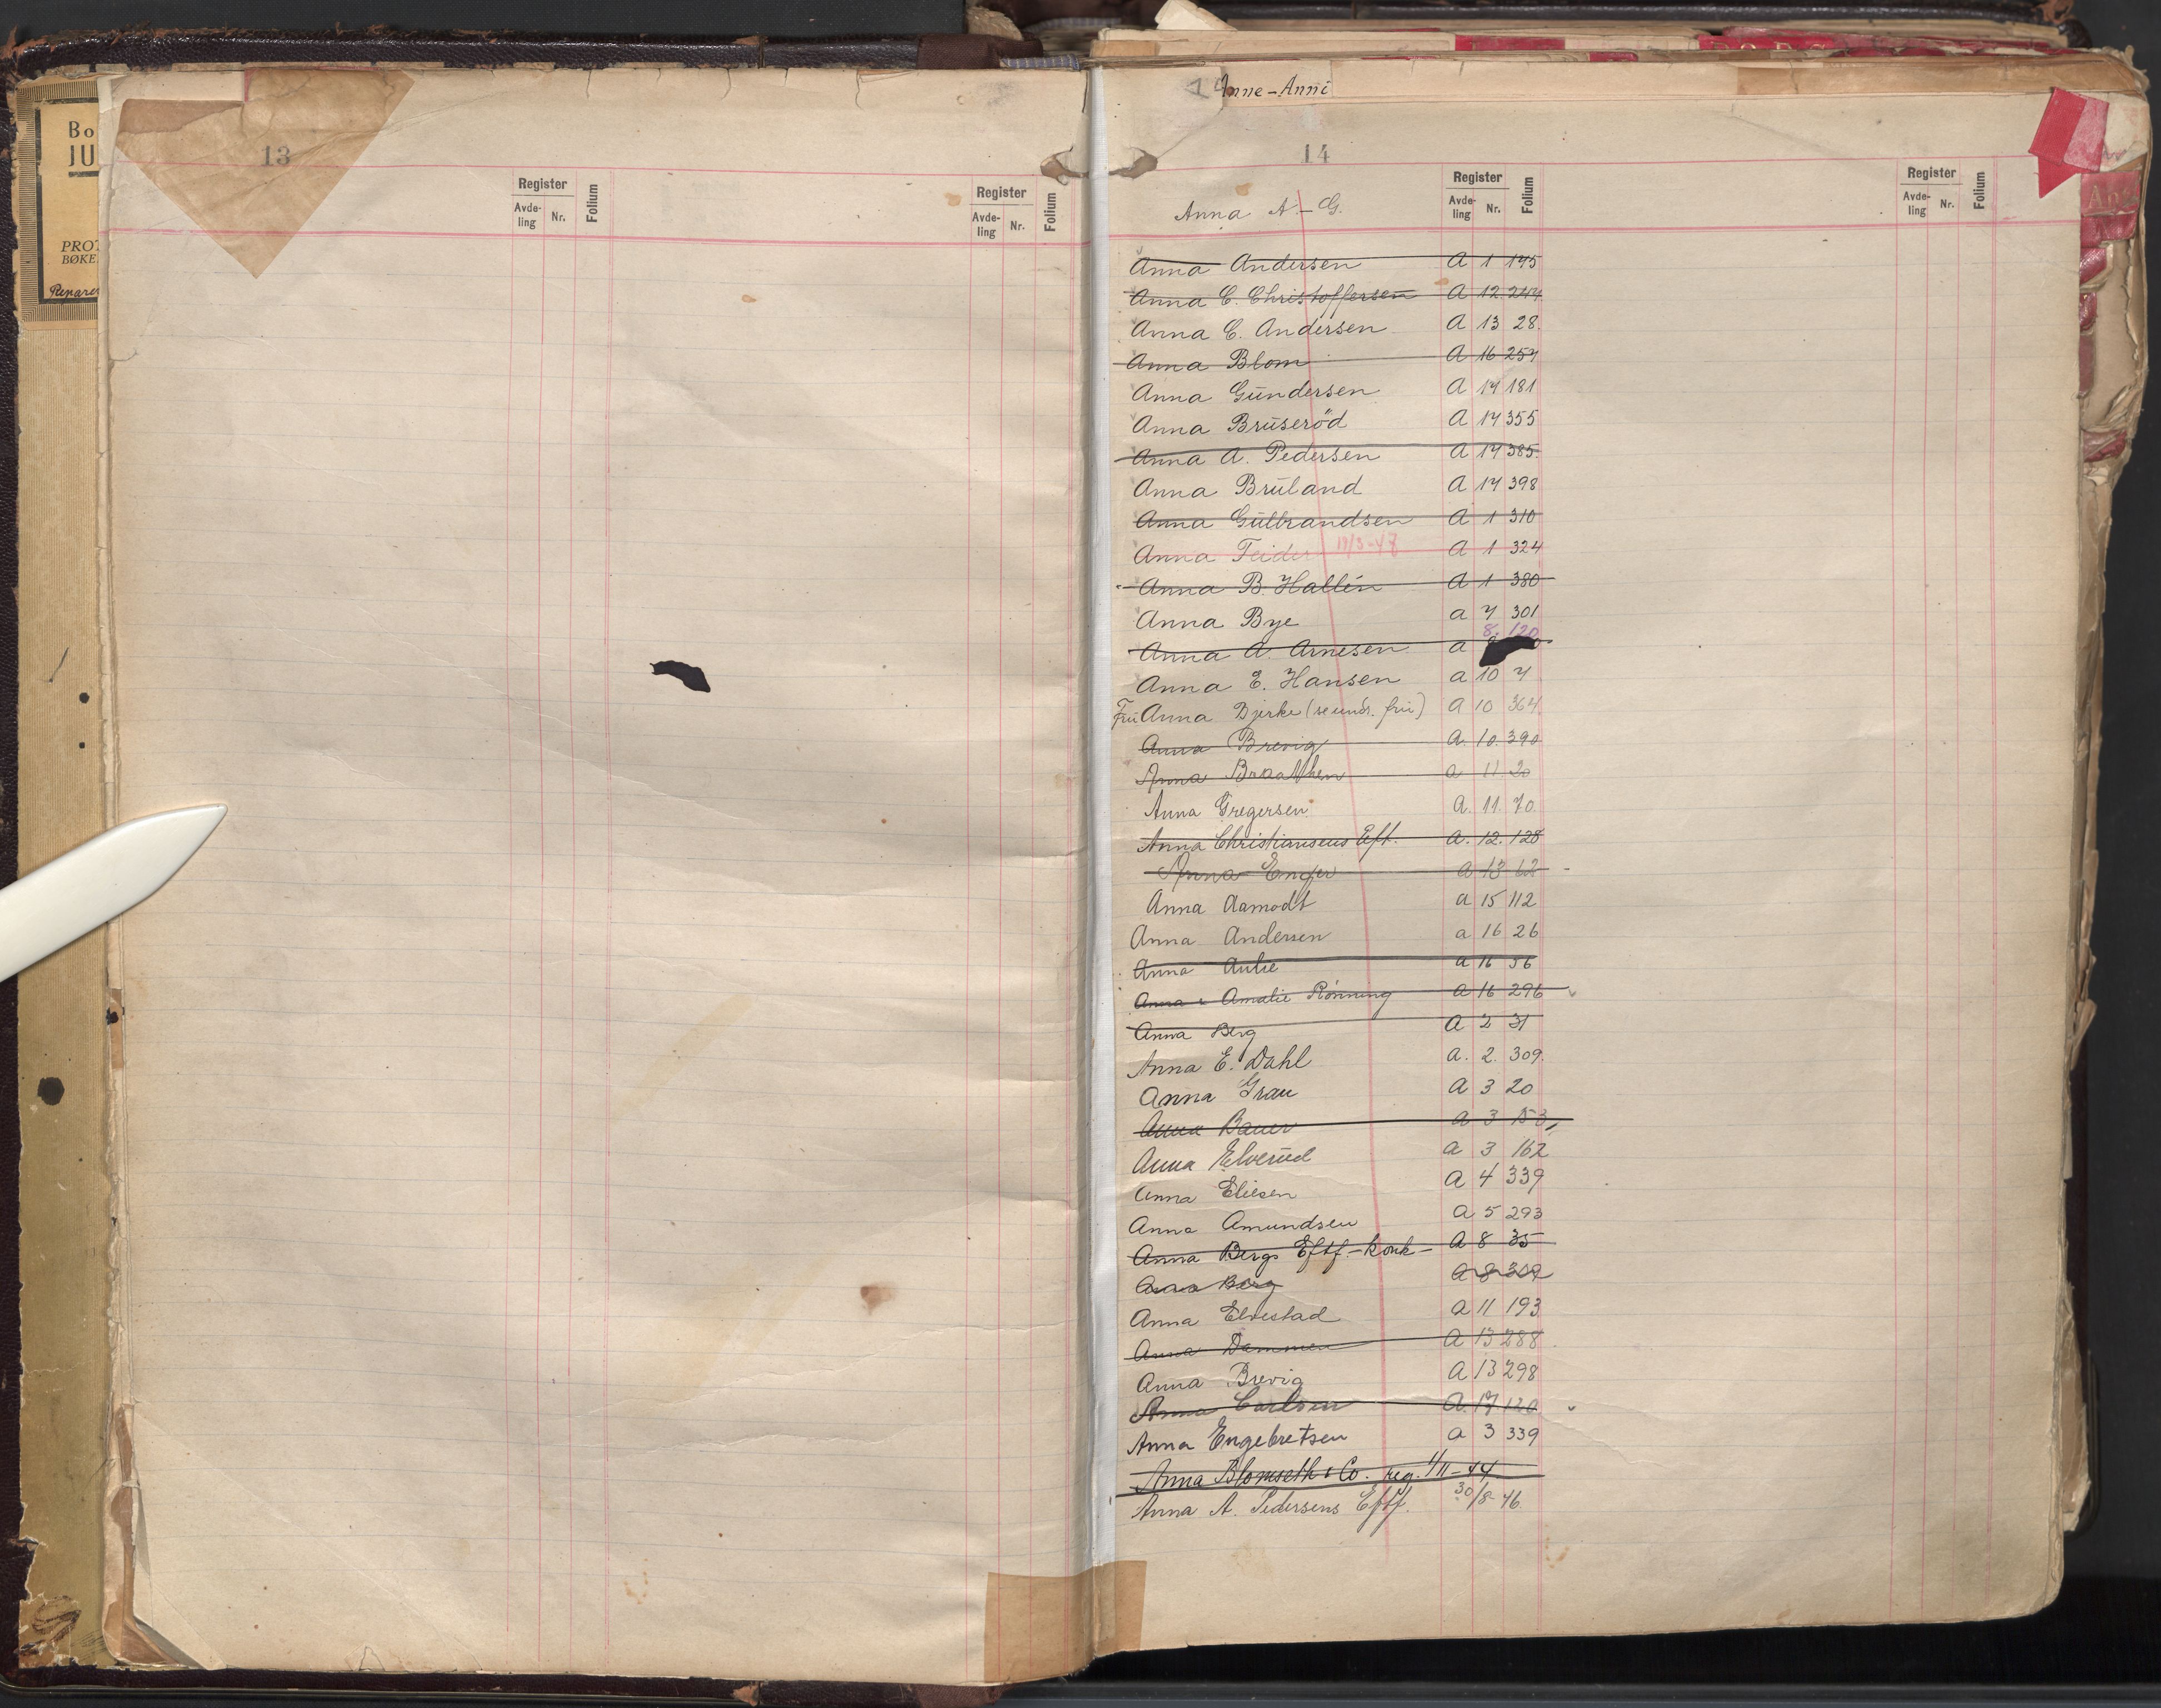 Bo
JU
PROT
BØKE
Reparer
13
Register
Avde-
ling
Nr.
Folium
Register
Avde-
ling
Nr.
Folium
Anne-Anni
14
Anna A-G.
Register
Avde-
ling
Nr.
Folium
Register
Avde-
ling
Nr.
Folium
Anna Andersen A 1 145
Anna C. Christoffersen A 12. 244
Anna C. Andersen A 13 28.
Anna Blom A 16 257
Anna Gündersen A 17 181
Anna Brüseröd A 17 355
Anna A. Pedersen A 17 385.
Anna Brüland A 17 398
Anna Gülbrandsen A 1 310
Anna Feider A 1 324
Anna B. Hallén A 1 380
Anna Bye a 7 301
8. 120
Anna A. Arnesen a
Anna E. Hansen a 10 7
Frü Anna Bjerke (se unds. frü) A 10 364
Anna Brevig A. 10. 390
Anna Braathen a 11 20
Anna Gregersen A. 11. 70.
Anna Christiansens Eft. A. 12. 128
Anna Enger a 13 62
Anna Aamodt a 15 112
Anna Andersen a 16 26
Anna Aulie a 16 56
Anna & Amalie Rønning A 16 296
Anna Berg A 2 31
Anna E. Dahl A. 2. 309.
Anna Grau A 3 20
Anna Bauer a 3 153
Anna Elverüd a 3 162
Anna Eliesen A 4 339
Anna Amundsen A 5 293
Anna Bergs Eftf. - konk - A 8 35
Anna Berg A 8 302
Anna Elvestad a 11 193
Anna Dammen A 13 288
Anna Brevig A 13 298
Anna Carlsen A. 17 120
Anna Engebretsen a 3 339
Anna Blomseth & Co. reg. 1/11-44
Anna A. Pedersens Eftf. 30/8-46.